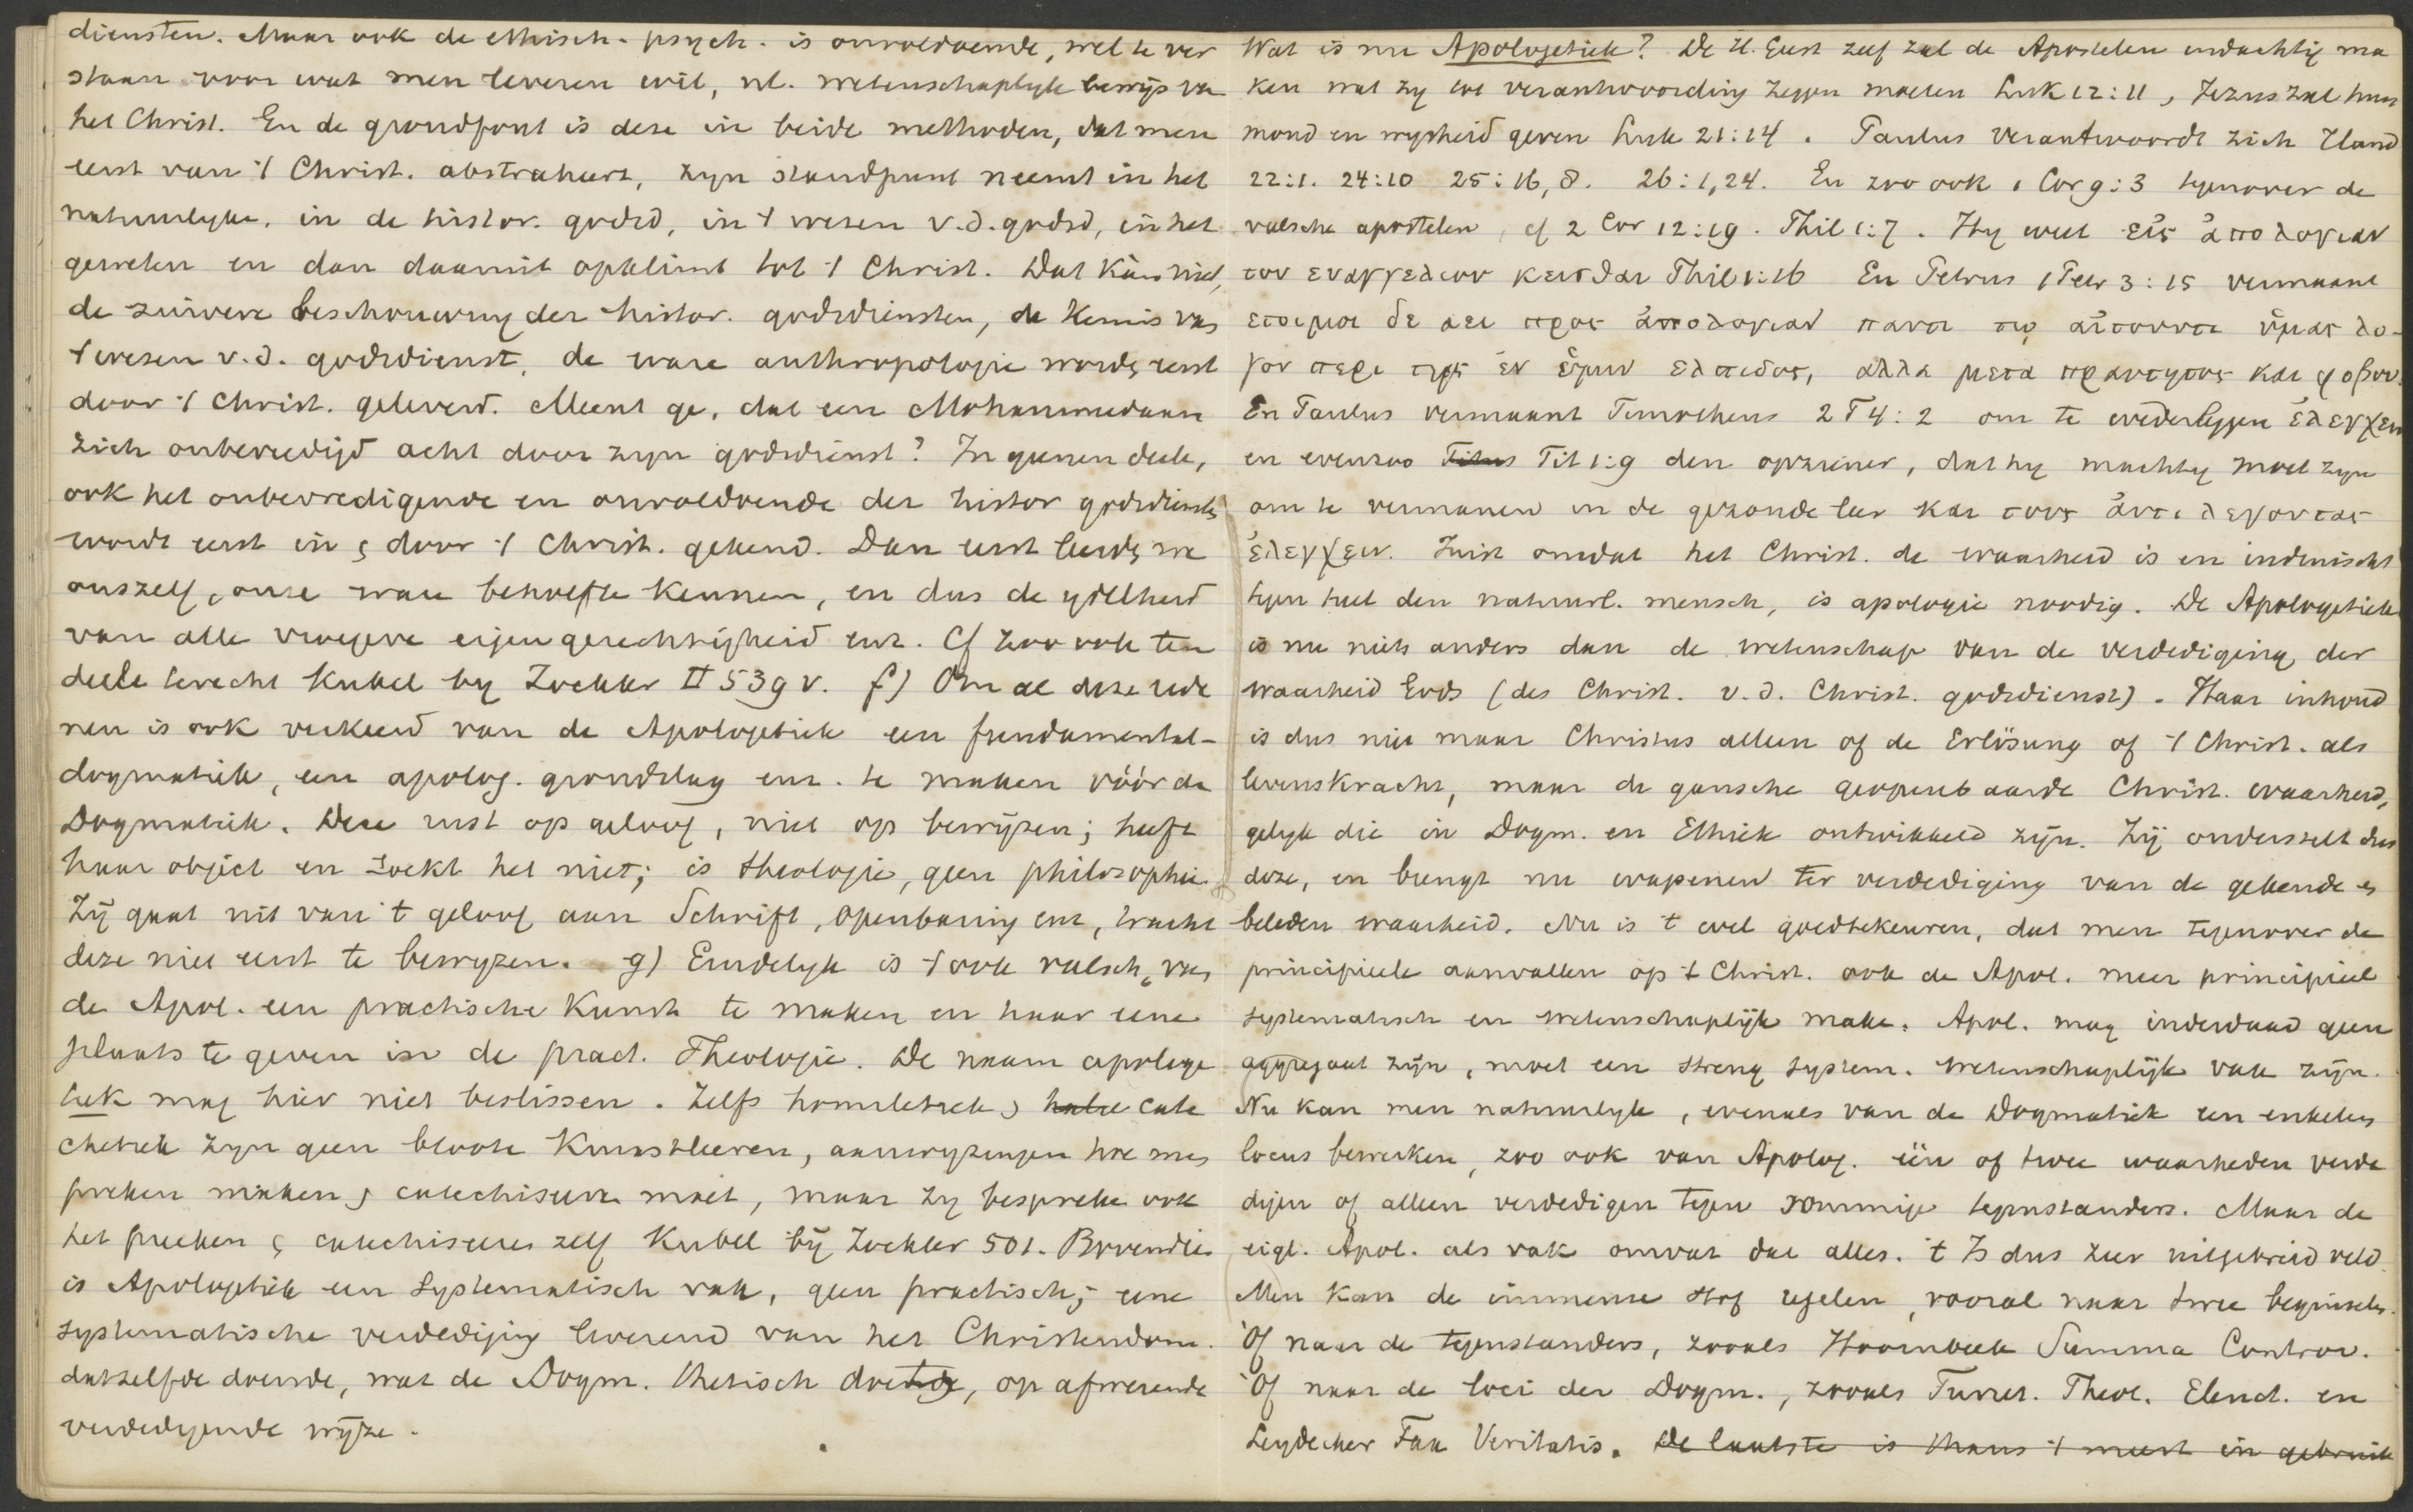 diensten. Maar ook de ethisch-psych. is onvoldoende, wel te ver
staan voor wat men leveren wil, nl. wetenschaplyk bewijs va
het Christ. En de grondfout is deze in beide methoden, dat men
eerst van 't Christ. abstraheert, zyn standpunt neemt in het
natuurlyke, in de histor. godsd, in 't wezen v.d. godsd, in het
geweten en dan daaruit opklimt tot 't Christ. Dat kàn niet,
de zuivere beschouwing der histor. godsdiensten, de kennis van
't wezen v.d. godsdienst, de ware anthropologie wordt eerst
door 't Christ. geleverd. Meent ge, dat een Mohammedaan
zich onbevredigd acht door zyn godsdienst? In geenen deele,
ook het onbevredigende en onvoldoende der histor godsdienst
wordt eerst in en door 't Christ. gekend. Dan eerst leeren we
onszelf, onze ware behoefte kennen, en dus de ydelheid
van alle vroegere eigengerechtigheid enz. Cf zoo ook ten
deele terecht Kubel by Zockler II 539 v. f) Om al deze rede
nen is ook verkeerd van de Apologetiek een fundamental-
dogmatiek, een apolog. grondslag enz. te maken vóór de
Dogmatiek. Deze rust op geloof, niet op bewijzen; heeft
haar object en zoekt het niet; is theologie, geen philosophie.
Zij gaat uit van 't geloof aan Schrift, openbaring enz, tracht
deze niet eerst te bewyzen. g) Eindelyk is 't ook valsch, van
de Apol. een practische kunst te maken en haar eene
plaats te geven in de pract. Theologie. De naam apologe
tiek mag hier niet beslissen. Zelfs homiletiek en cate
chetiek zyn geen bloote Kunstleeren, aanwyzingen hoe men
preken maken en catechiseren moet, maar zy bespreken ook
het preeken en catechiseren zelf Kubel bij Zockler 501. Bovendien
is Apologetiek een Systematisch vak, geen practisch; eene
systematische verdediging leverend van het Christendom.
datzelfde doende, wat de Dogm. thetisch doet, op afwerende
verdedigende wijze.
Wat is nu Apologetiek? De H. Geest zelf zal de Apostelen indachtig ma
ken wat zy tot verantwoording zeggen moeten Luk 12:11, Jezus zal hun
mond en wysheid geven Luk 21:14. Paulus verantwoordt zich Hand
22:1. 24:10 25:16, 8. 26:1,24. En zoo ook 1 Cor 9:3 tegenover de
valsche apostelen, cf 2 Cor 12:19. Phil 1:7. Hy weet εἰς ἀπολογιαν
του ευαγγελιου κεισθαι Phil 1:16 En Petrus 1 Petr 3:15 vermaant
ετοιμοι δε αει προς ἀπολογιαν παντι τῳ αἰτουντι ὑμας λο-
γον περι της ἐν ὑμιν ελπιδος, αλλα μετα πραυτητος και φοβου.
En Paulus vermaant Timotheus 2 T 4:2 om te wederleggen ἐλεγχειν
en evenzoo Titus Tit 1:9 den opziener, dat hy machtig moet zyn
om te vermanen in de gezonde leer και τους ἀντιλεγοντας
ἐλεγχειν. Juist omdat het Christ. de waarheid is en indruischt
tegen heel den natuurl. mensch, is apologie noodig. De Apologetiek
is nu niets anders dan de wetenschap van de verdediging der
waarheid Gods (des Christ. v.d. Christ. godsdienst). Haar inhoud
is dus niet maar Christus alleen of de Erlösung of 't Christ. als
levenskracht, maar de gansche geopenbaarde Christ. waarheid,
gelyk die in Dogm. en Ethiek ontwikkeld zijn. Zij onderstelt dus
deze, en brengt nu wapenen ter verdediging van de gekende en
beleden waarheid. Nu is 't wel goedtekeuren, dat men tegenover de
principieele aanvallen op 't Christ. ook de Apol. meer principieel
systematisch en wetenschaplijk make. Apol. mag inderdaad geen
aggregaat zijn, moet een streng system. wetenschaplijk vak zijn.
Nu kan men natuurlyk, evenals van de Dogmatiek een enkelen
locus bewerken, zoo ook van Apolog. één of twee waarheden verde
digen of alleen verdedigen tegen sommige tegenstanders. Maar de
eigl. Apol. als vak omvat dat alles. 't Is dus zeer uitgebreid veld.
Men kan de immense stof regelen, vooral naar twee beginselen.
Of naar de tegenstanders, zooals Hoornbeek Summa Controv.
Of naar de loci der Dogm., zooals Turret. Theol. Elenct. en
Leydecker Fax Veritatis. De laatste is thans 't meest in gebruik